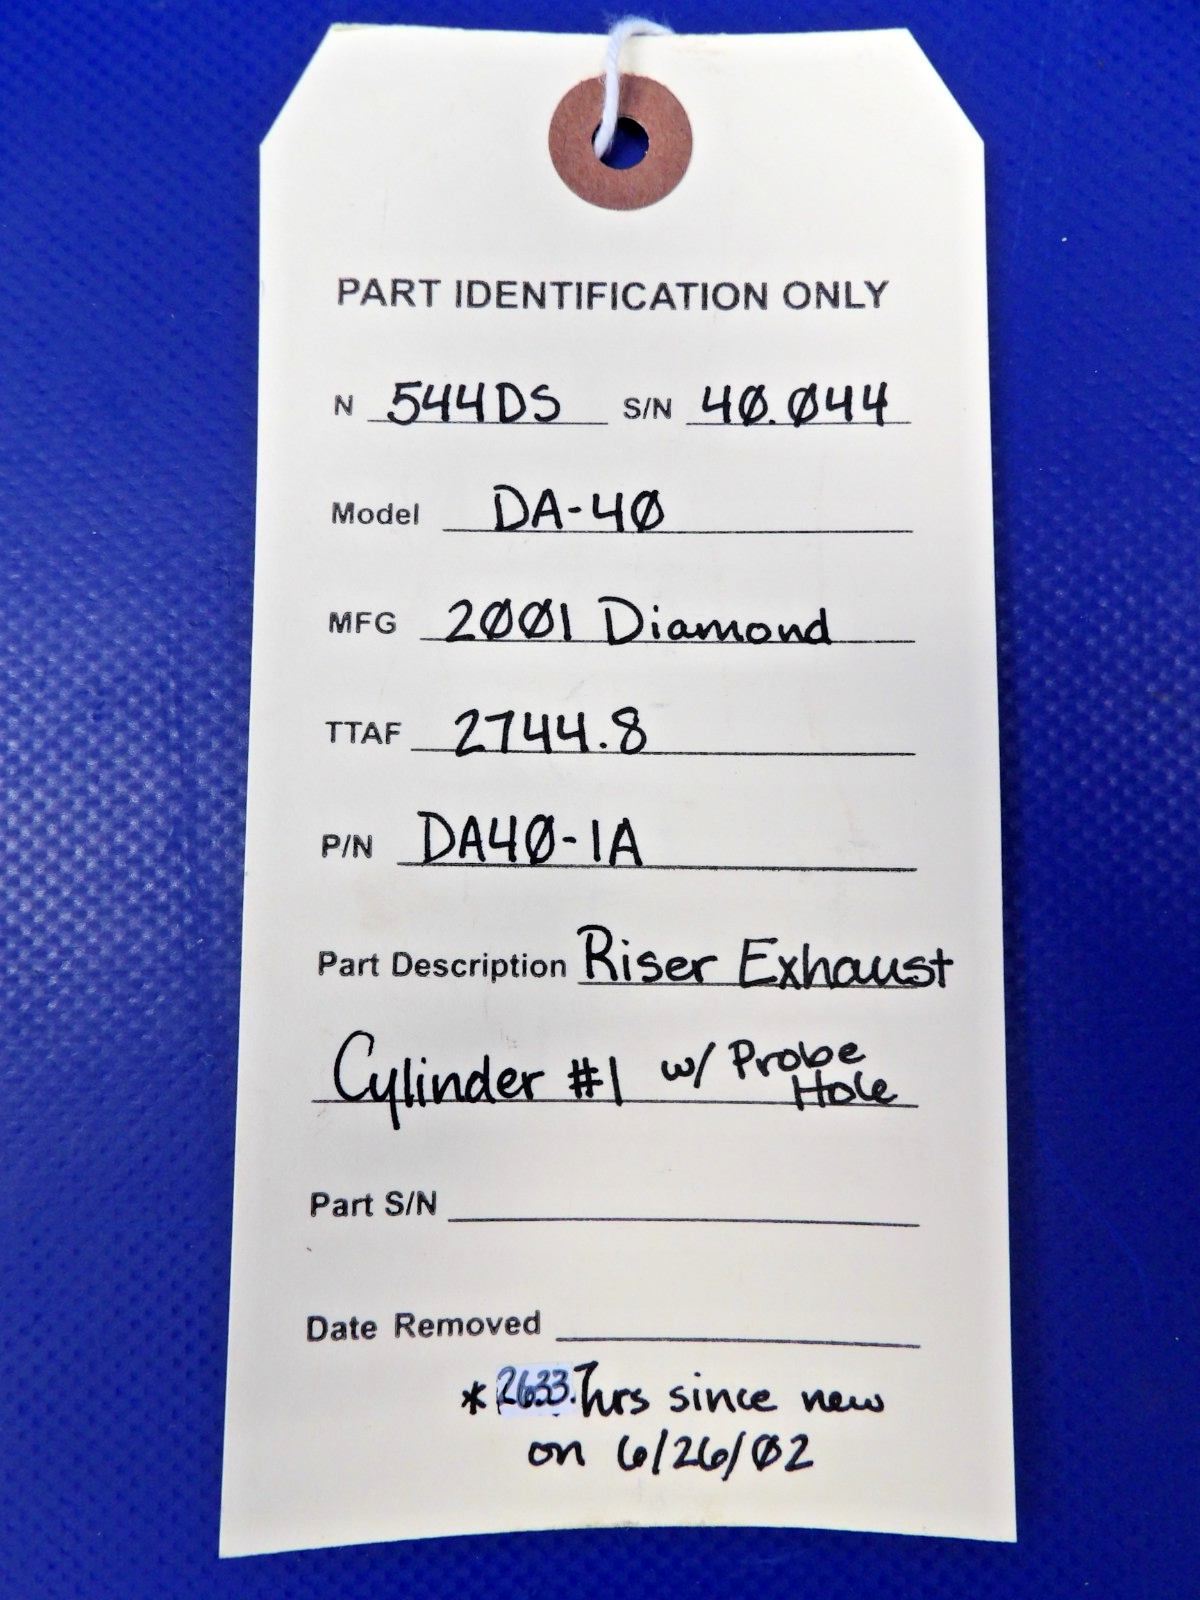 PART IDENTIFICATION ONLY
N 544DS S/N 40.044
Model DA-40
MFG 2001 Diamond
TTAF 2744.8
P/N DA40-1A
Part Description Riser Exhaust
Cylinder #1 w/ Probe Hole
Part S/N
Date Removed
* 2633.7hrs since new
on 6/26/02